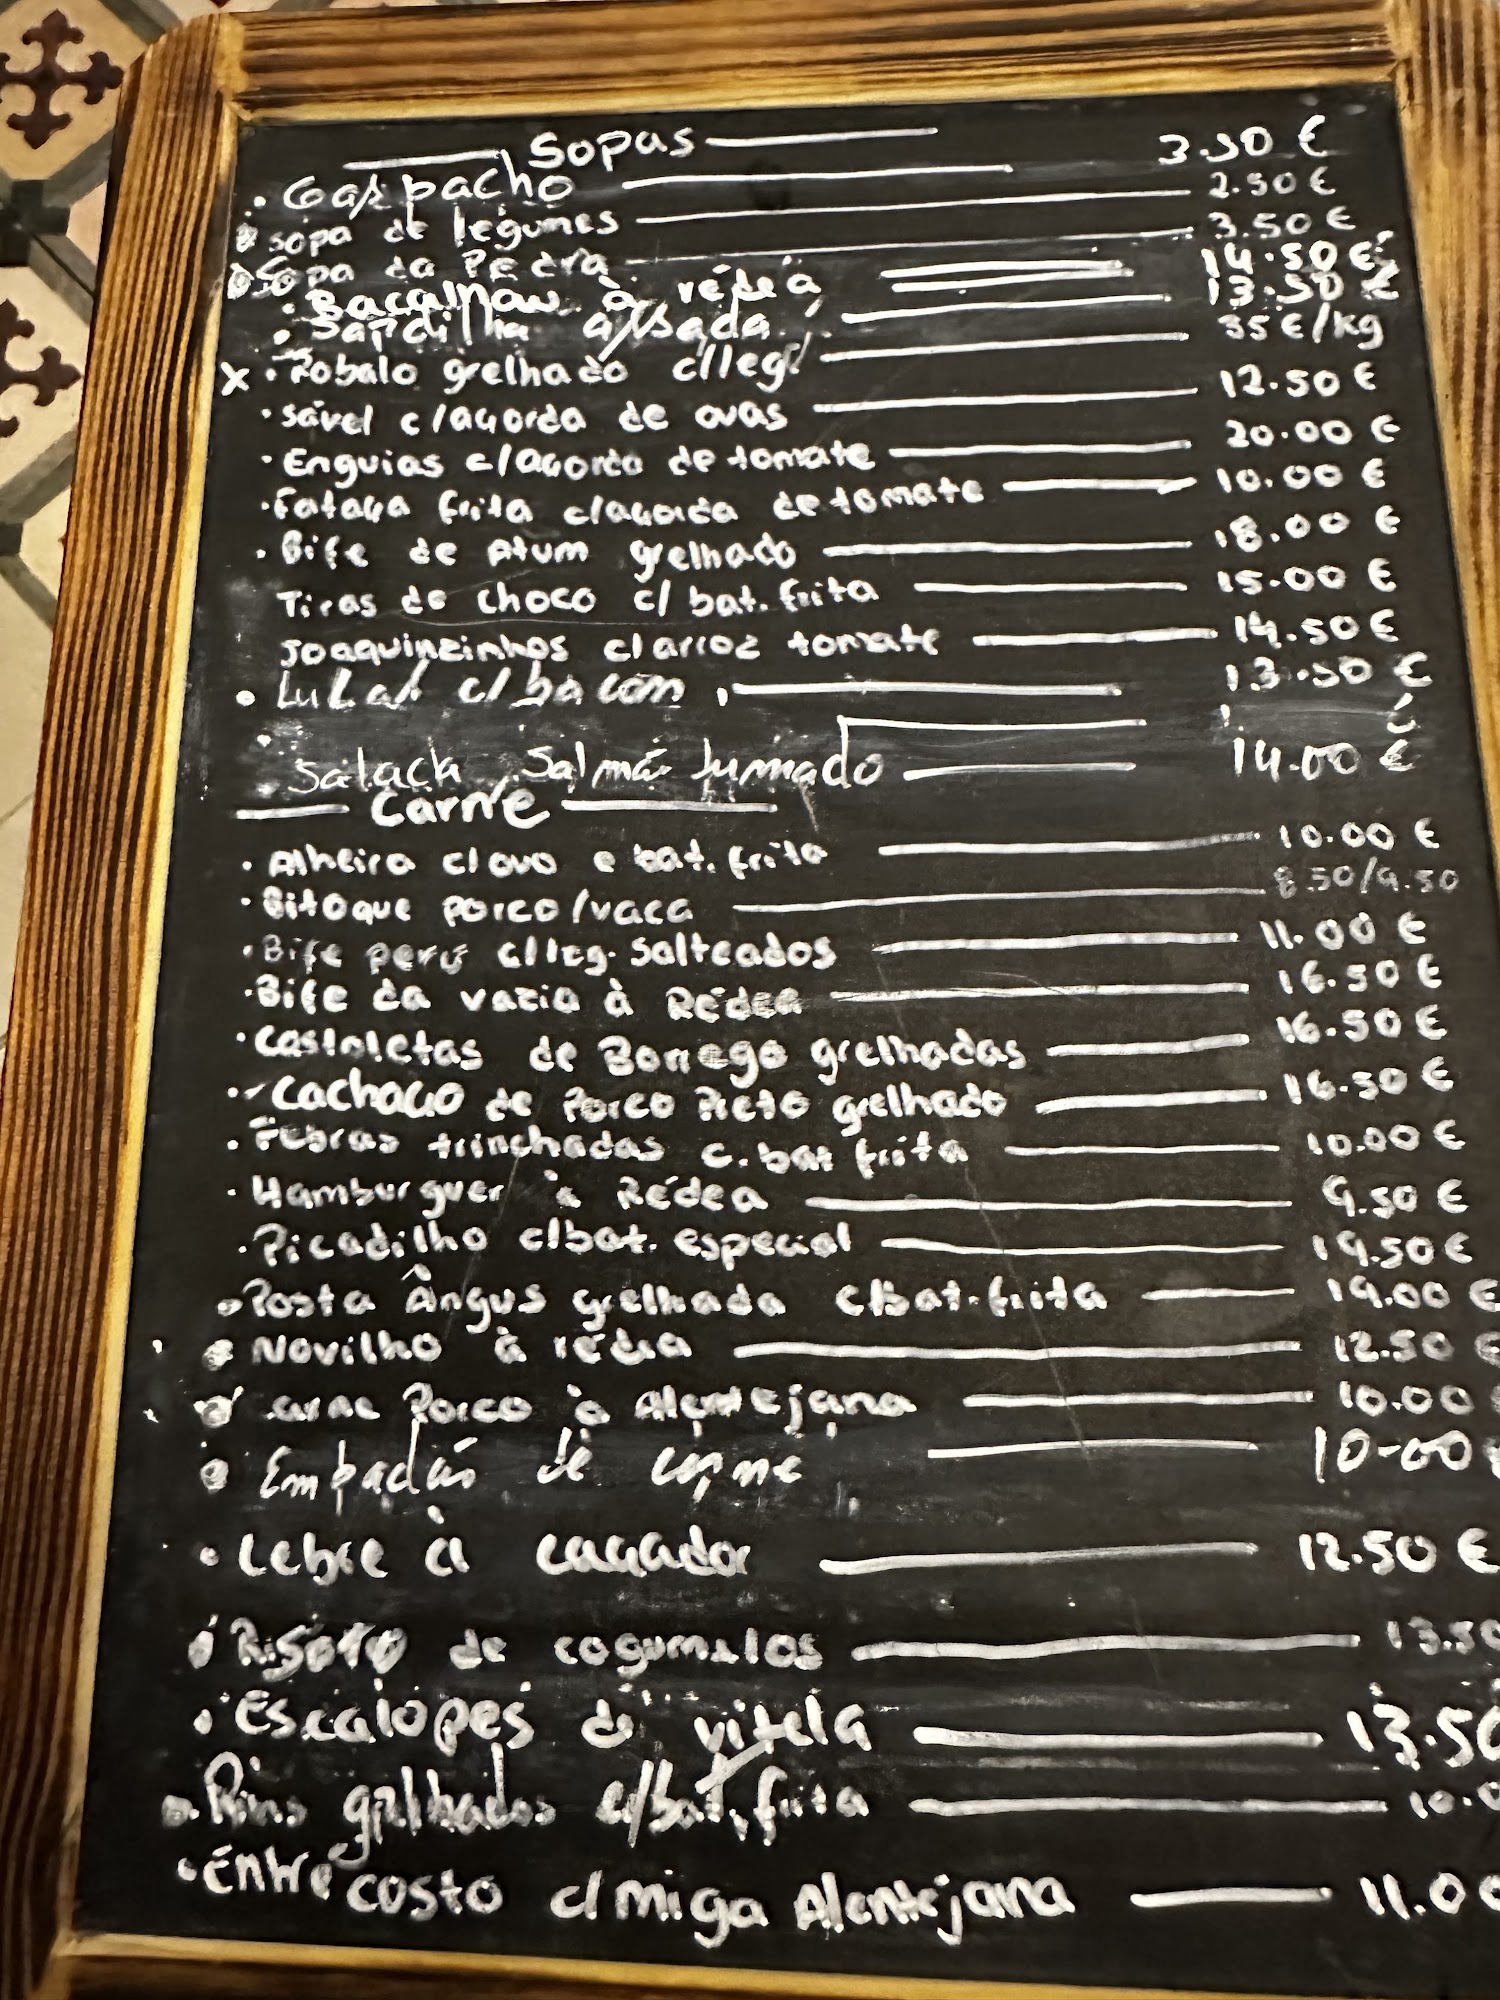 Sopas
· Gaspacho 3.50 €
sopa de legumes 2.50 €
Sopa da Pedra 3.50 €
· Bacalhau à rédea 14.50 €
· Sardilha assada 13.50 €
x · Robalo grelhado c/leg. 35 €/kg
· sável c/açorda de ovas 12.50 €
· Enguias c/açorda de tomate 20.00 €
· Fataça frita c/açorda de tomate 10.00 €
· Bife de Atum grelhado 18.00 €
Tiras de choco c/ bat. frita 15.00 €
Joaquinzinhos c/ arroz tomate 14.50 €
· Lulas c/ bacom 13.50 €
Salada Salmão fumado 14.00 €
Carne
· Alheira c/ ovo e bat. frita 10.00 €
· Bitoque porco/vaca 8.50/9.50
· Bife peru c/leg. Salteados 11.00 €
· Bife da vazia à Rédea 16.50 €
· Costoletas de Borrego grelhadas 16.50 €
· Cachaço de Porco Preto grelhado 16.50 €
· Febras trinchadas c. bat frita 10.00 €
· Hamburguer à Rédea 9.50 €
· Picadilho c/bat. especial 19.50 €
· Posta Ângus grelhada c/bat. frita 19.00 €
· Novilho à rédea 12.50 €
carne Porco à Alentejana 10.00
Empadão de carne 10-00
· Lebre à caçador 12.50 €
Risoto de cogumelos 13.50
· Escalopes de vitela 13.50
· Rins grelhados c/bat. frita 10.0
· Entrecosto c/ miga Alentejana 11.00